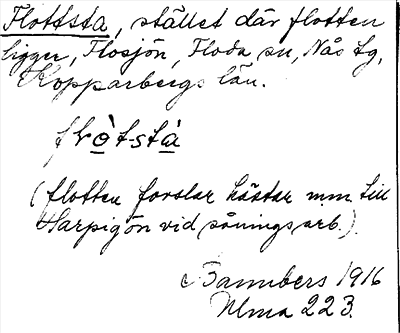 Flottsta, stället där flotten
ligger, Flosjön, Floda sn, Nås tg,
Kopparbergs län.
flò̲t-stà̲
(flotten forslar hästar mm till
Harpigön vid såningsarb.).
Bannbers 1916
Ulma 223.